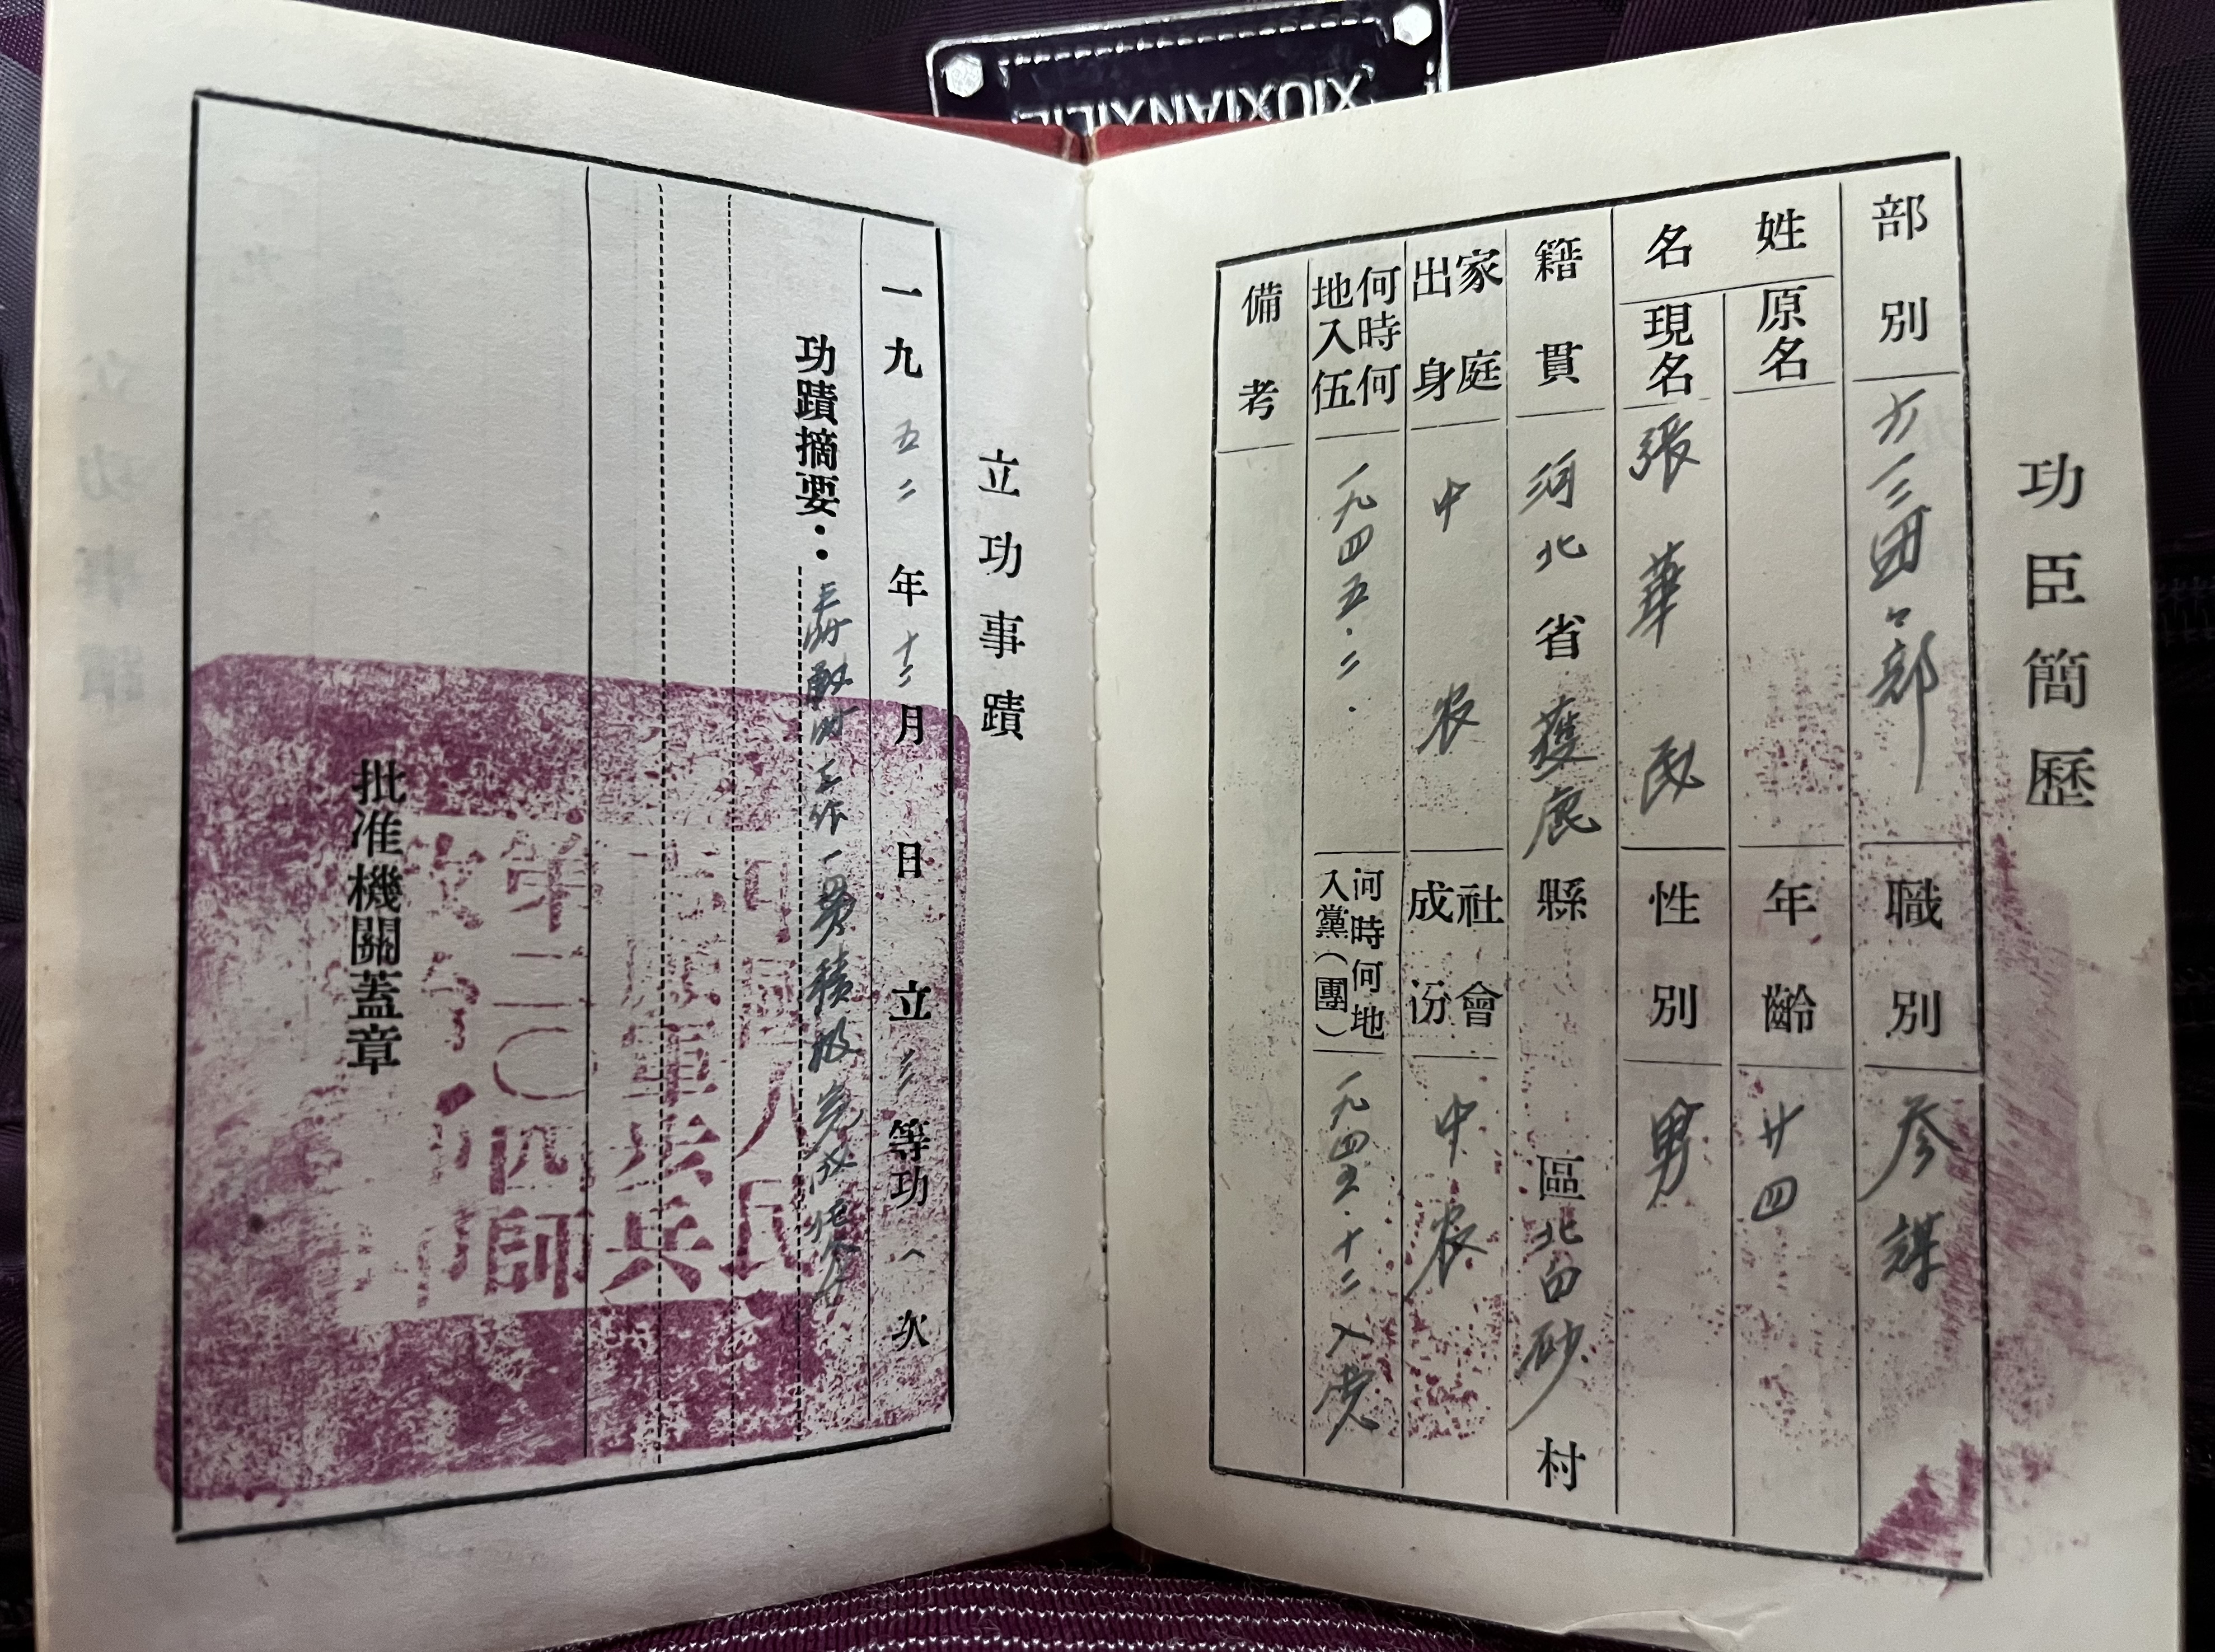 功臣簡歷
部別 六一三团々部 職別 参謀
姓名 原名 年齡 廿四
現名 張華民 性別 男
籍貫 河北省獲鹿縣 區北白砂村
家庭出身 中农 社會成份 中农
何時何地入伍 一九四五.二. 何時何地入黨(團) 一九四五.十二入党
備考
立功事蹟
一九五二年十二月 日立三等功一次
功蹟摘要：工作一貫積极完成任务
批准機關蓋章
中國人民
高射砲兵
第二〇四師
XIUXIANXILIE